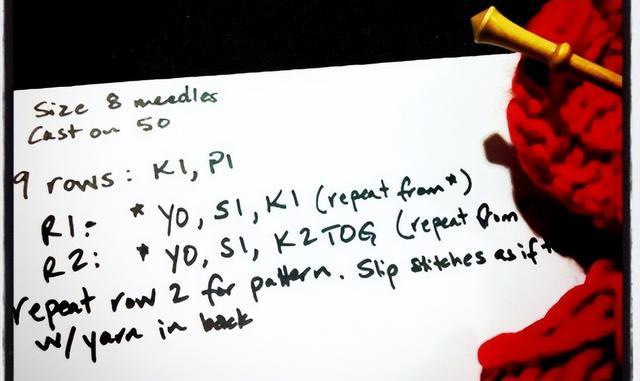 Size 8 needles
Cast on 50
9 rows: K1, P1
R1:- * YO, S1, K1 (repeat from *)
R2: * YO, S1, K2TOG (repeat from
repeat row 2 for pattern. Slip stitches as if
w/yarn in back